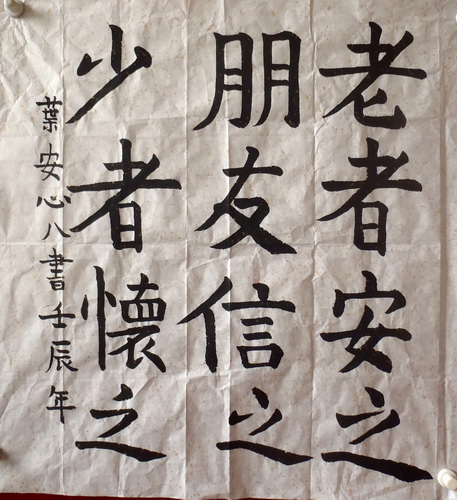 老者安之
朋友信之
少者懷之
葉安心八書壬辰年